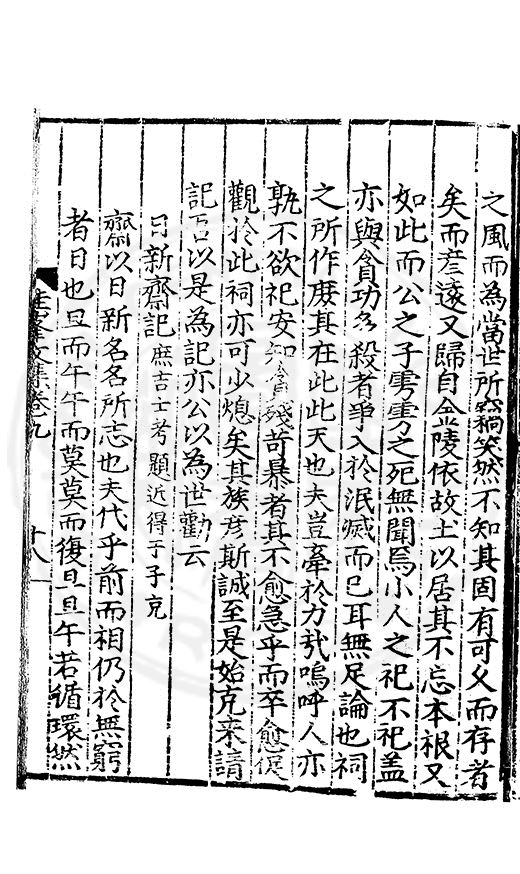 之風而為當世所竊笑然不知其固有可久而存者
矣而彥遠又歸自金陵依故土以居其不忘本根又
如此而公之子雱雱之死無聞焉小人之祀不祀盖
亦與貪功多殺者爭入於泯滅而已耳無足論也祠
之所作庻其在此此天也夫豈牽於力㢤嗚呼人亦
孰不欲祀安知貪殘苛暴者其不愈急乎而卒愈促
觀於此祠亦可少熄矣其族彦斯誠至是始克来請
記吾以是為記亦公以為世勸云
日新齋記 庶吉士考題近得于子克
齋以日新名名所志也夫代乎前而相仍於無窮
者日也旦而午午而莫莫而復旦旦午若循環然
圭峰文集卷九
十八